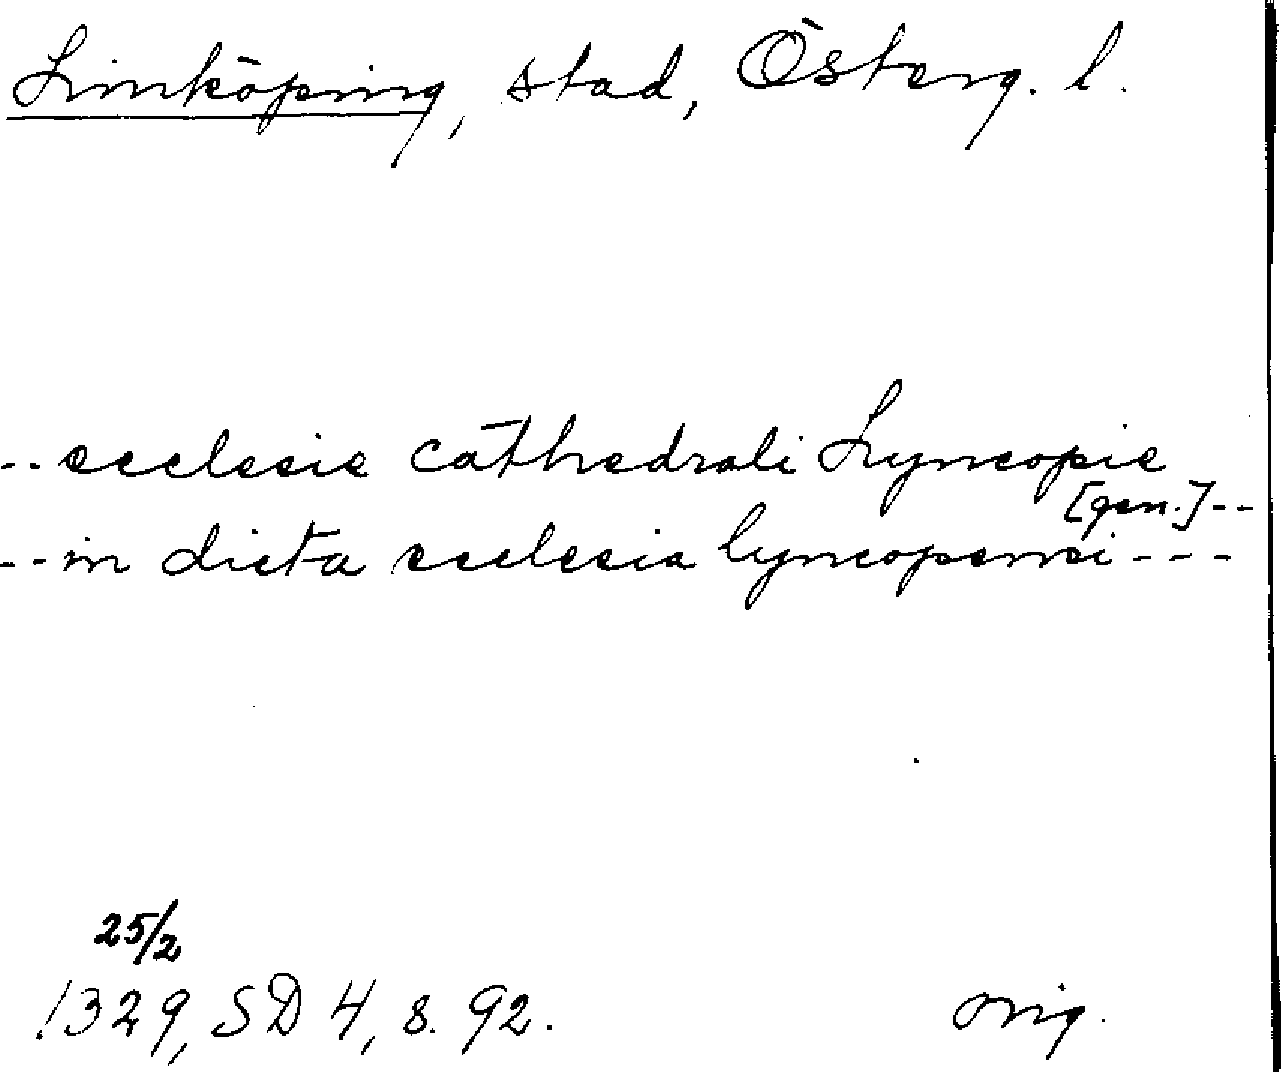 Linköping, stad, Österg. l.
-- ecclesie cathedrali Lyncopie
[gen.] --
-- in dicta ecclesia lyncopensi ---
25/2
1329, SD 4, s. 92.
orig.